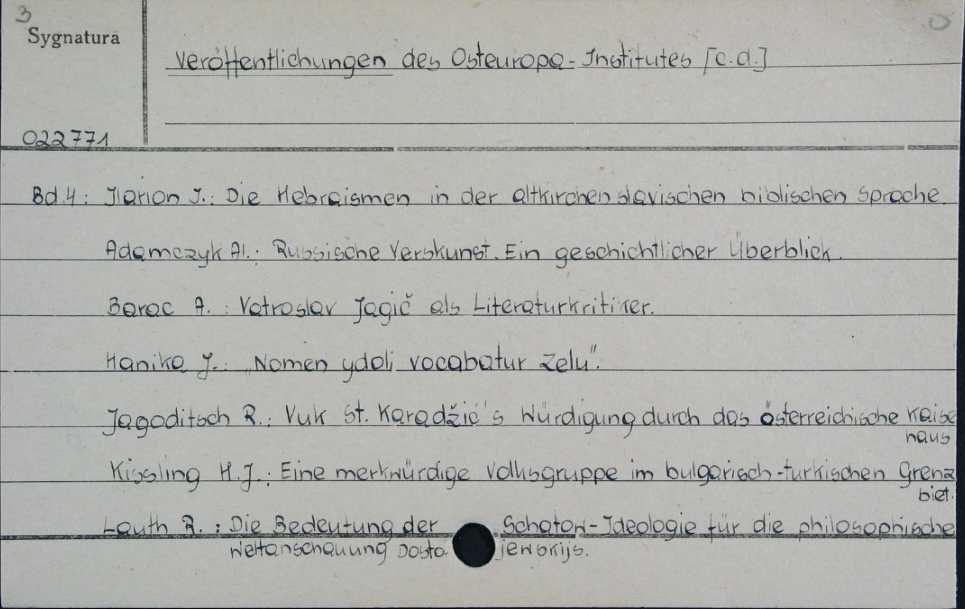 3
Sygnatura
Veröffentlichungen des Osteuropa-Institutes [c.d.]
022771
Bd.4: Ilarion J.: Die Hebraismen in der altkirchenslavischen biblischen Sprache.
Adamczyk Al.: Russische Verskunst. Ein geschichtlicher Überblick.
Barac A.: Vatroslav Jagič als Literaturkritiker.
Hanika J.: „Nomen ydoli vocabatur Zelu".
Jagoditsch R.: Vuk St. Karadžić's Würdigung durch das österreichische Kaise
haus
Kissling H.J.: Eine merkwürdige Volksgruppe im bulgarisch-turkischen Grenz
biet.
Lauth R.: Die Bedeutung der Schatow-Ideologie für die philosophische
Weltanschauung Dosto jewskijs.